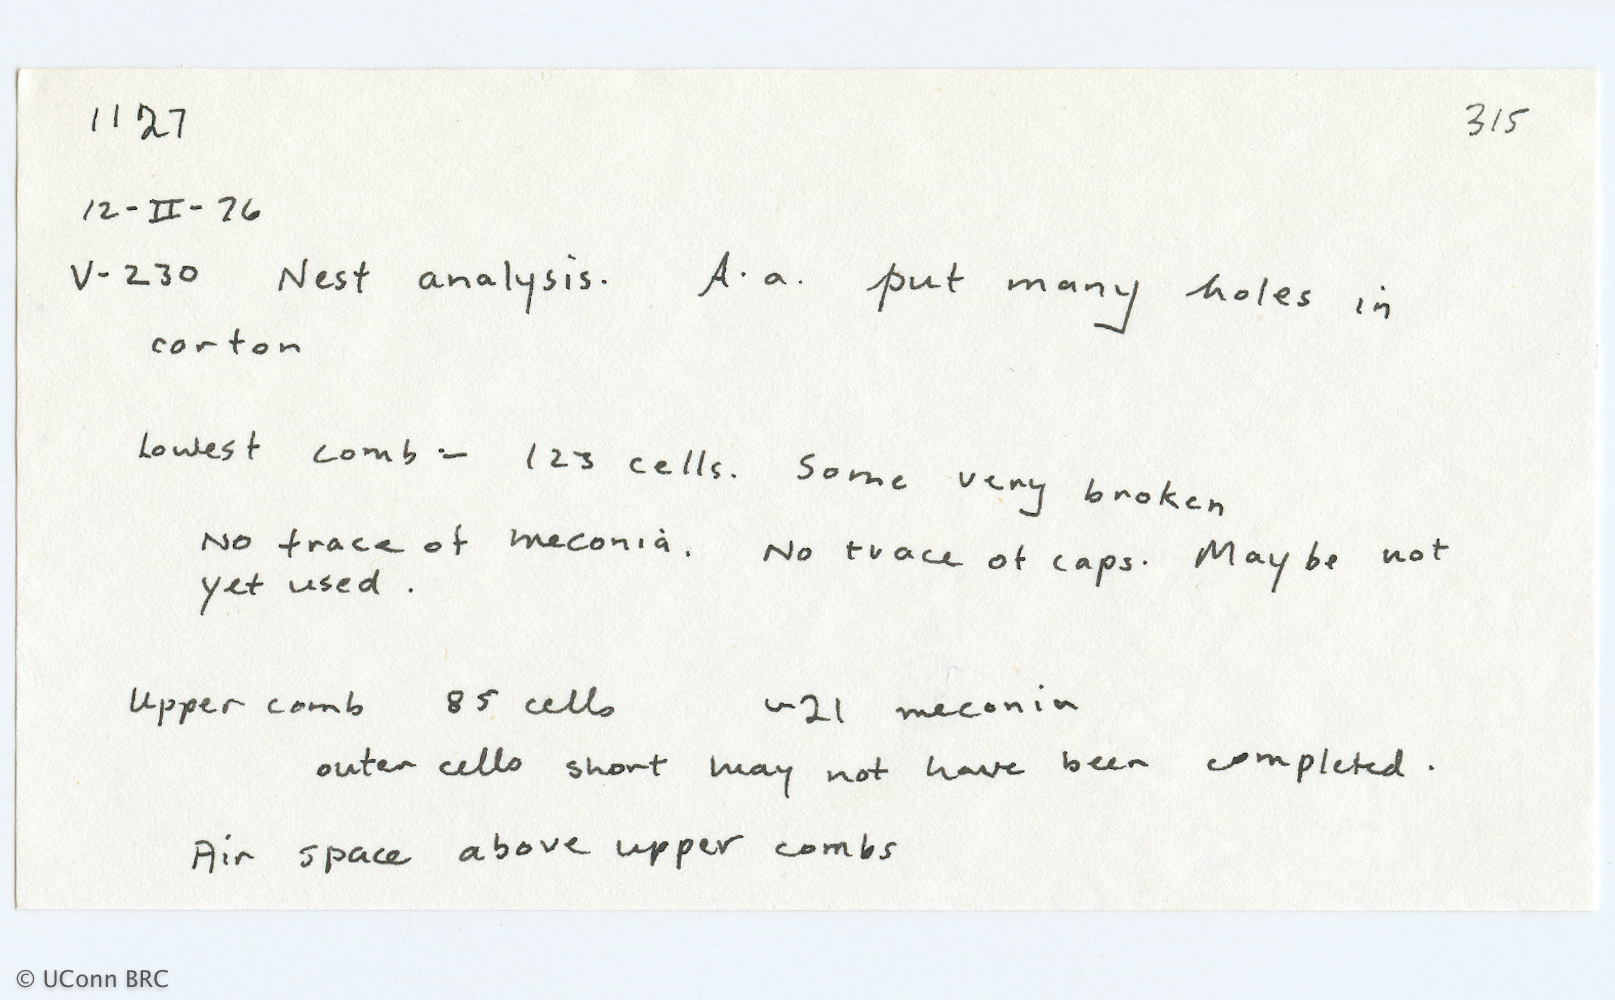 1127 315
12-II-76
V-230 Nest analysis. A.a. put many holes in
carton
Lowest comb - 123 cells. Some very broken
No trace of meconia. No trace of caps. Maybe not
yet used.
Upper comb 85 cells ~21 meconia
outer cells short may not have been completed.
Air space above upper combs
© UConn BRC